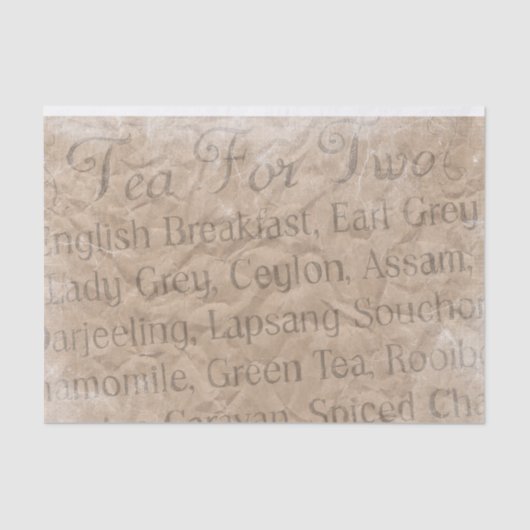 Tea For Two
English Breakfast, Earl Grey
Lady Grey, Ceylon, Assam,
Darjeeling, Lapsang Souchon
hamomile, Green Tea, Rooibo
Caravan, Spiced Cha